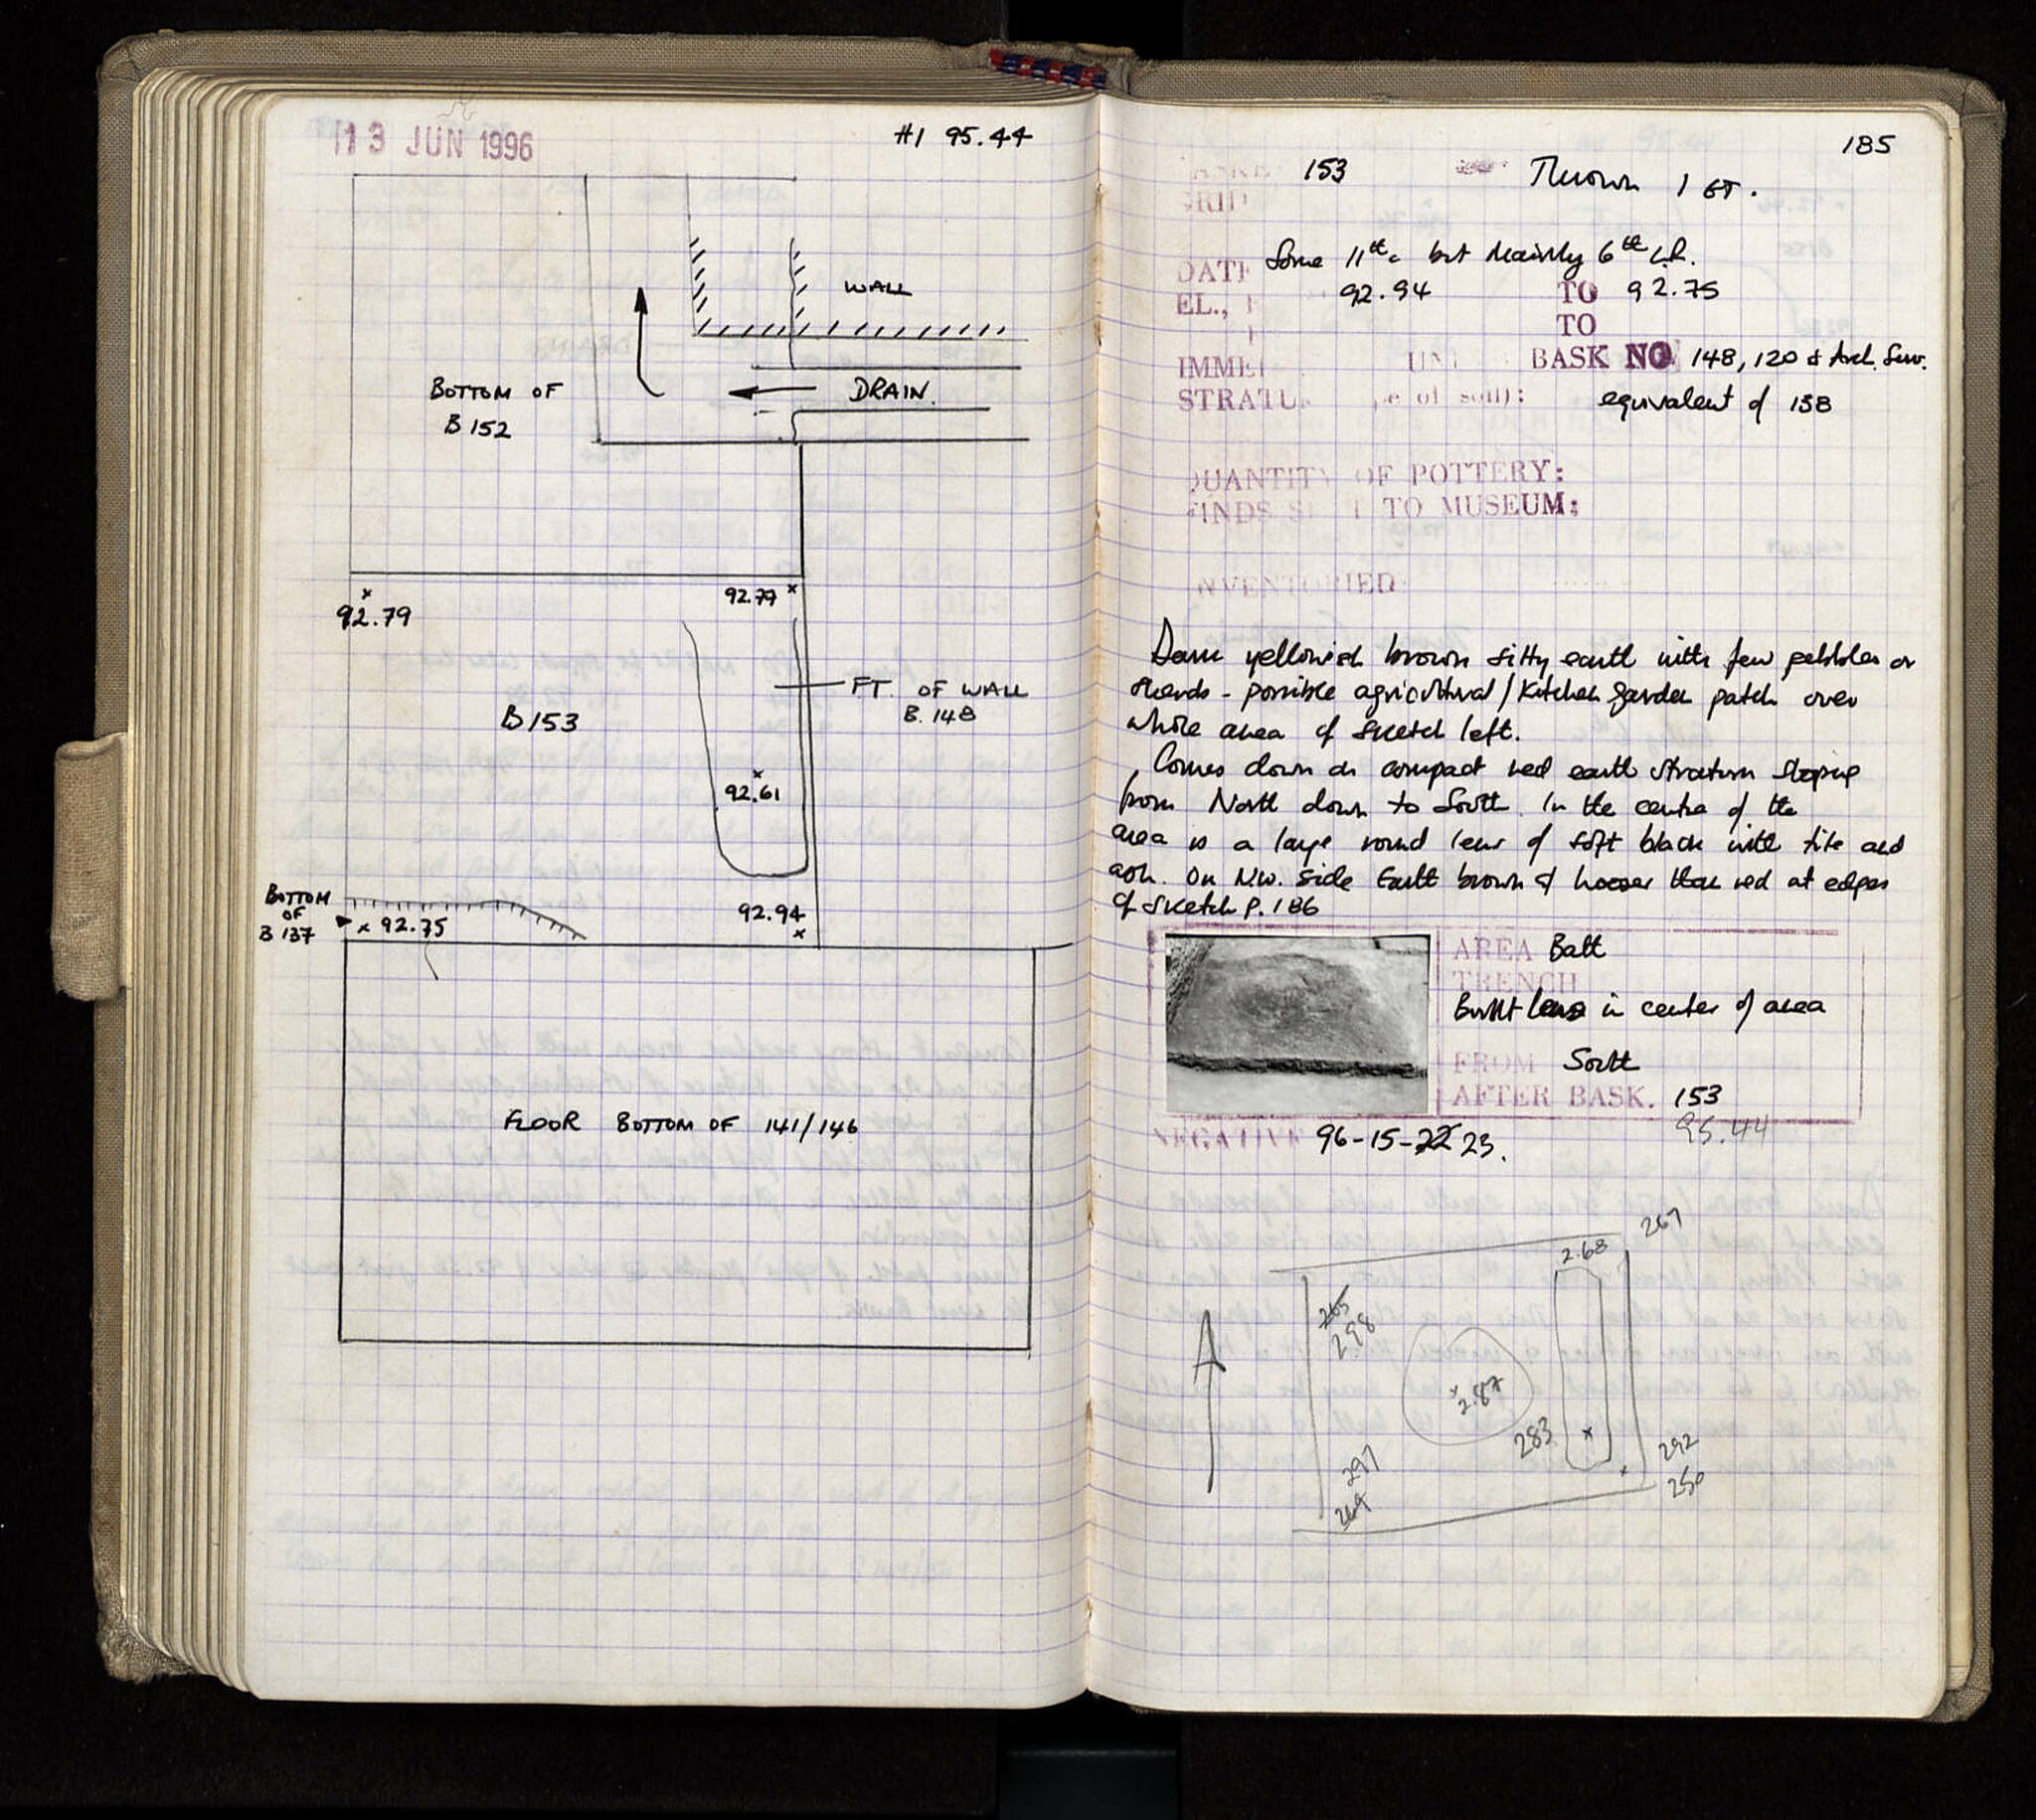 13 JUN 1996
#1 95.44
WALL
DRAIN.
BOTTOM OF
B 152
92.79
92.79
FT. OF WALL
B. 148
B 153
92.61
BOTTOM
OF
B 137
92.75
92.94
FLOOR BOTTOM OF 141/146
185
153 Thrown 1 BT.
GRID
Some 11th c but Mainly 6th L.R.
DATE
EL., 92.94 TO 92.75
TO
IMME UN BASK NO 148, 120 & Arch. Surv.
STRATU e of soil): equivalent of 138
QUANTITY OF POTTERY:
FINDS S T TO MUSEUM:
INVENTORIED
Dark yellowish brown silty earth with few pebbles or
sherds - possible agricultural/Kitchen garden patch over
whole area of sketch left.
Comes down on compact red earth stratum sloping
from North down to South. In the centre of the
area is a large round lens of soft black with tile and
ash. On NW. side Earth brown & looser than red at edges
of sketch P. 186
AREA Batt
TRENCH
Burnt lens in center of area
FROM South
AFTER BASK. 153
95.44
NEGATIVE 96-15-22 23.
267
2.68
265
298
2.87
283
297
269
292
250